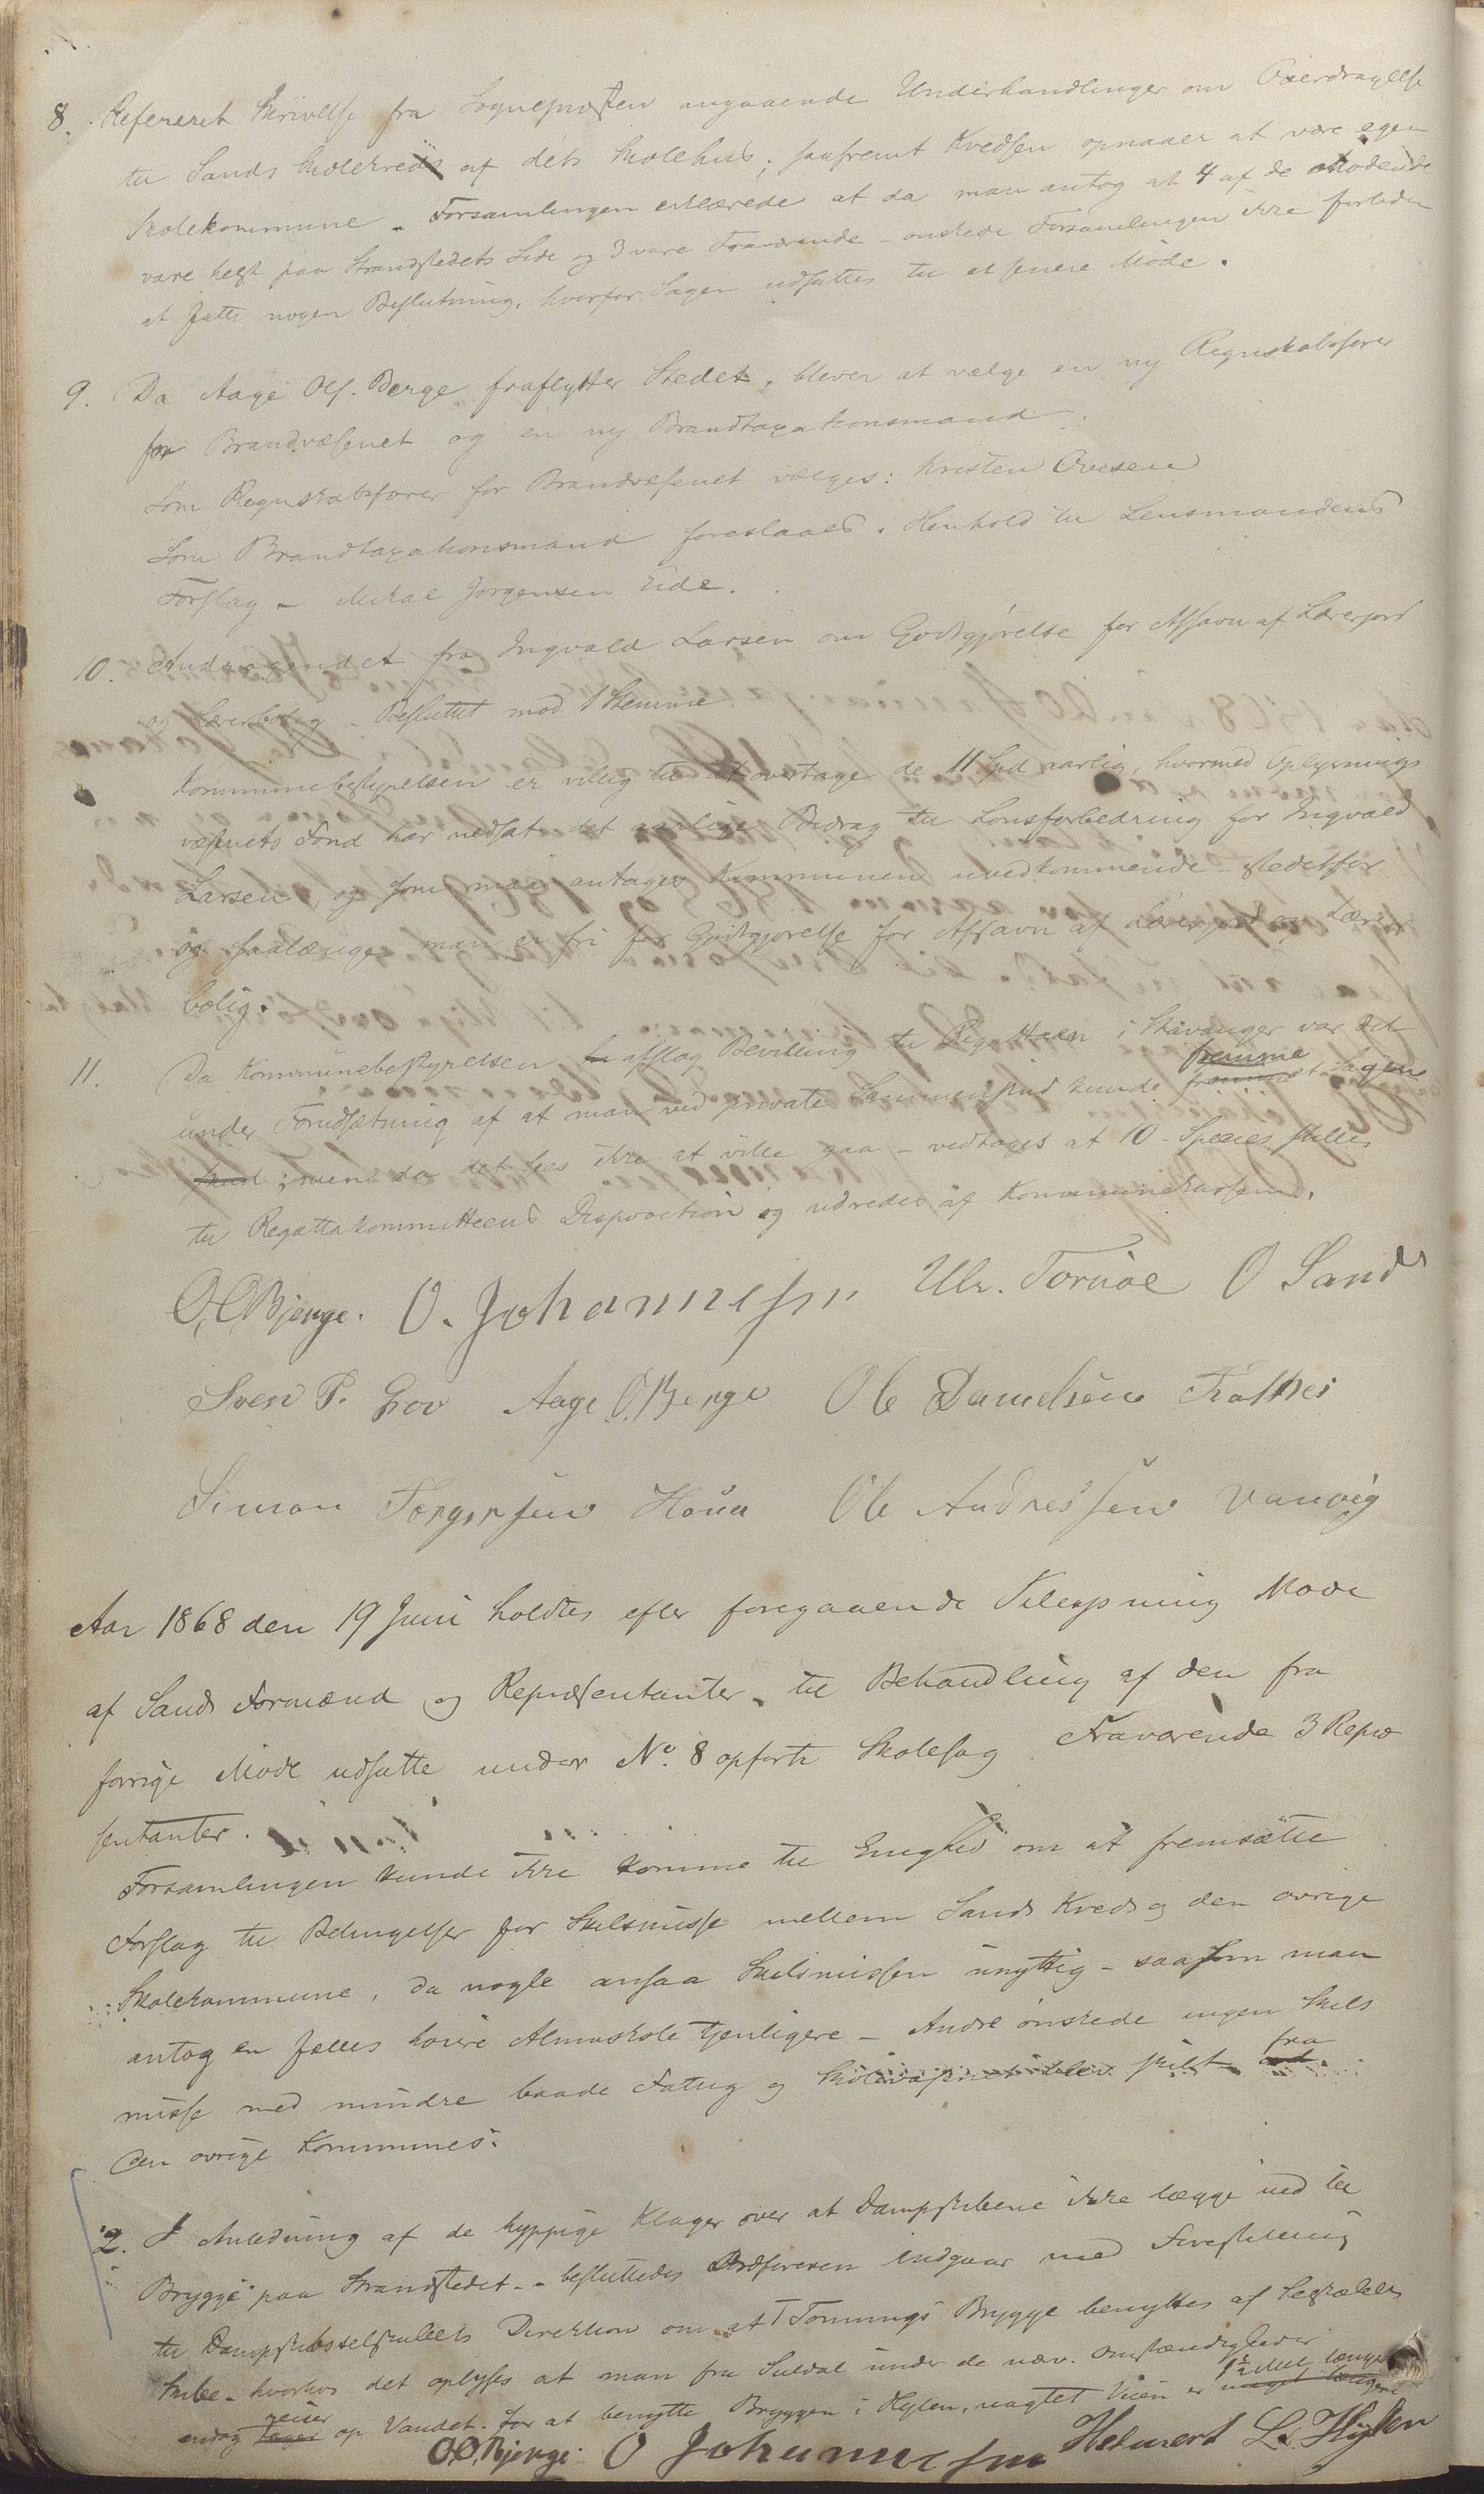 8. Refereret Skrivelse fra Sognepresten angaaende Underhandlinger om Overdragelse
til Sands Skolekreds af dets Skolehus, saafremt Kredsen opnaaer at være egen
Skolekommune. Forsamlingen erklærede at da man antog at 4 af de Mødende
vare helst paa Strandstedets Side og 3 vare Fraværende - ønskede Forsamlingen ikke
at fatte nogen Beslutning, hvorfor Sagen udsattes til et senere Møde.
9. Da Aage Ols. Berge fraflytter Stedet, blever at vælge en ny Regnskabsfører
for Brandvæsenet og en ny Brandtaxationsmand.
Som Regnskabsfører for Brandvæsenet vælges: Kristen Ovesen
Som Brandtaxationsmand foreslaaes i Henhold til Lensmandens
Forslag - Mikal Jørgensen Eide.
10. Andragendet fra Ingvald Larsen om Godtgjørelse for Afsavn af Lærerjord
og Lærerbolig - Besluttet mod 1 Stemme
Kommunebestyrelsen er villig til at overtage de 11 Spd aarlig, hvormed Oplysnings
væsenets Fond har nedsat det aarlige Bidrag til Lønsforbedring for Ingvald
Larsen, og som maa antages Kommunen uvedkommende - istedetfor
og saalænge man er fri for Godtgjørelse for Afsavn af Lærerjord og Lærer
bolig.
11. Da Kommunebestyrelsen afslog Bevilling til Regattaen i Stavanger var det
under Forudsætning af at man ved private Sammenskud kunde fremme Sagen
; men da det sees ikke at ville gaa - vedtoges at 10 - Species stilles
til Regattakommitteens Disposition og udredes af Kommunekassen.
O. O. Bjerge. O. Johannessen Ulr. Tornöe O Sand
Sven P. Grov Aage O. Berge Ole Danielsen
Simon Torgersen Houa Ole Andreassen Vanvig
Aar 1868 den 19 Juni holdtes efter foregaaende Tillysning Møde
af Sands Formænd og Repræsentanter, til Behandling af den fra
forrige Møde udsatte under No. 8 opførte Skolesag. Fraværende 3 Repræ
sentanter.
Forsamlingen kunde ikke komme til Enighed om at fremsætte
Forslag til Betingelser for Skilsmisse mellem Sands Kreds og den øvrige
Skolekommune, da nogle ansaa Skilsmissen unyttig - saasom man
antog en fælles høiere Almuskole tjenligere - Andre ønskede ingen Skils
misse med mindre baade Fattig og Skolevæsenet blev skilt fra
den øvrige Kommunes.
2. I Anledning af de hyppige Klager over at Dampskibene ikke lægge ind til
Brygge paa Strandstedet - besluttedes Ordføreren indgaar med Forestilling
til Dampskibsselskabets Direktion om at T Tonnings Brygge benyttes af Selskabets
Skibe - hvorhos det oplyses at man fra Suldal under de næv. Omstændigheder
endog reiser op Vandet for at benytte Bryggen i Hylen, uagtet Veien er ½ Mil længere
O. O. Bjerge. O Johannessen Helmert L. Hylen